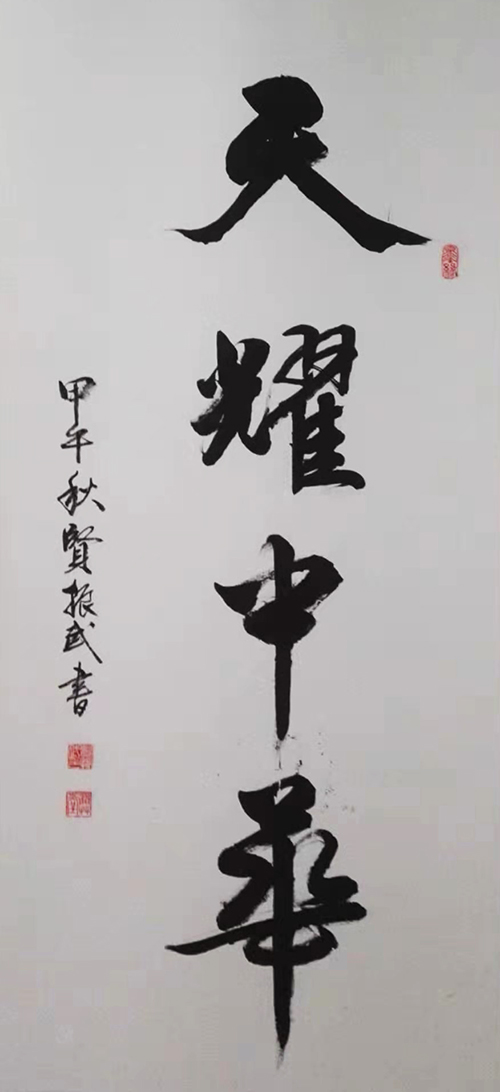 天耀中華
甲午秋賢振武書